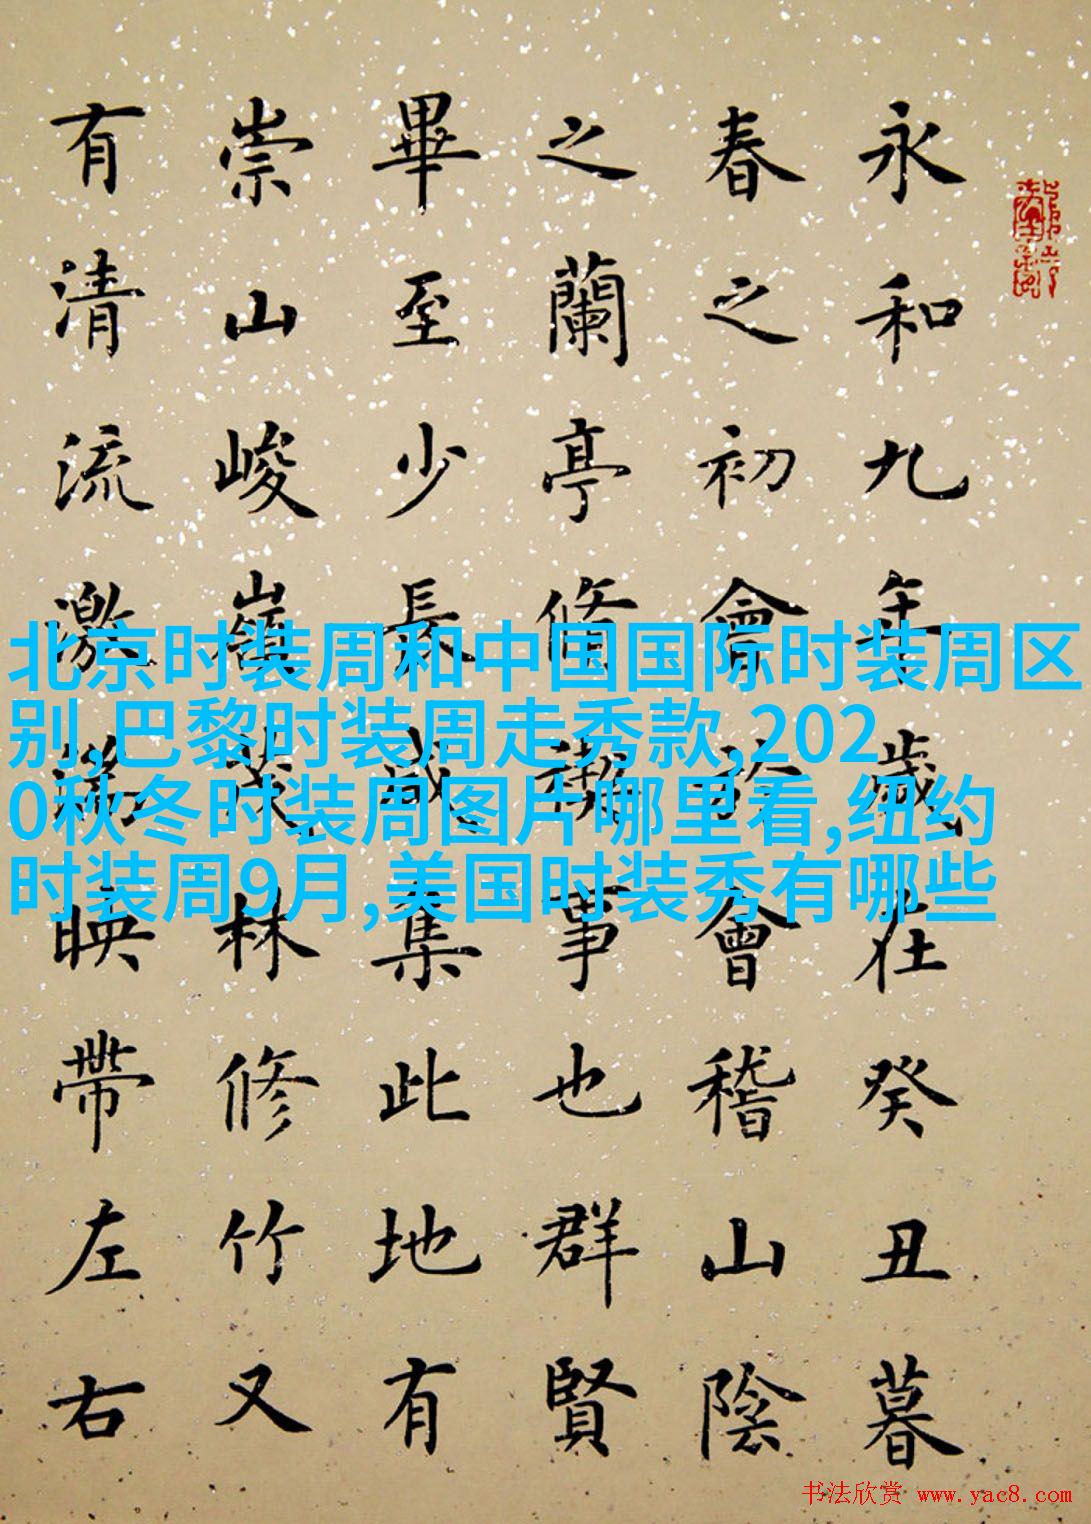 永和九年歲在癸丑暮
春之初會於會稽山陰
之蘭亭脩禊事也群賢
畢至少長咸集此地有
崇山峻嶺茂林修竹又
有清流激湍映帶左右
北京时装周和中国国际时装周区
别,巴黎时装周走秀款,202
0秋冬时装周图片哪里看,纽约
时装周9月,美国时装秀有哪些
书法欣赏 www.yac8.com